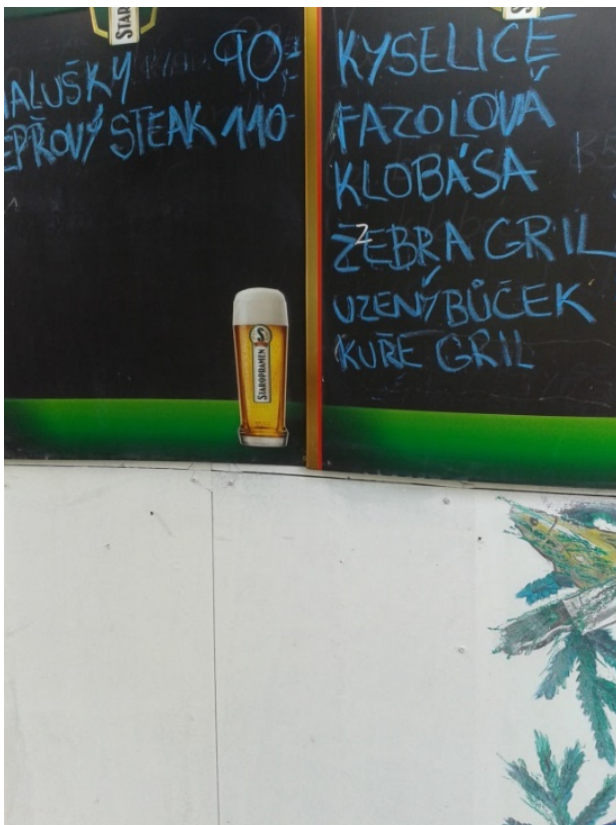 STAR
ALUŠKY 90,-
EPŘOVÝ STEAK 110
STAROPRAMEN
KYSELICE
FAZOLOVÁ
KLOBÁSA
ŽEBRA GRIL
UZENÝ BŮČEK
KUŘE GRIL